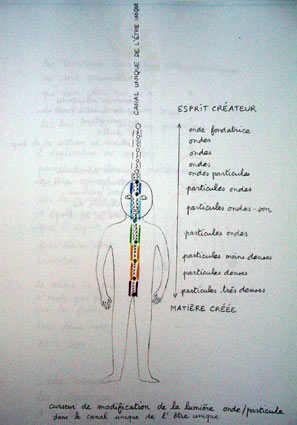 CANAL UNIQUE DE L'ÊTRE UNIQUE
ESPRIT CRÉATEUR
onde fondatrice
ondes
ondes
ondes
ondes particules
particules ondes
particules ondes-son
particules ondes
particules moins denses
particules denses
particules très denses
MATIÈRE CRÉÉE
curseur de modification de la lumière onde/particule
dans le canal unique de l'être unique